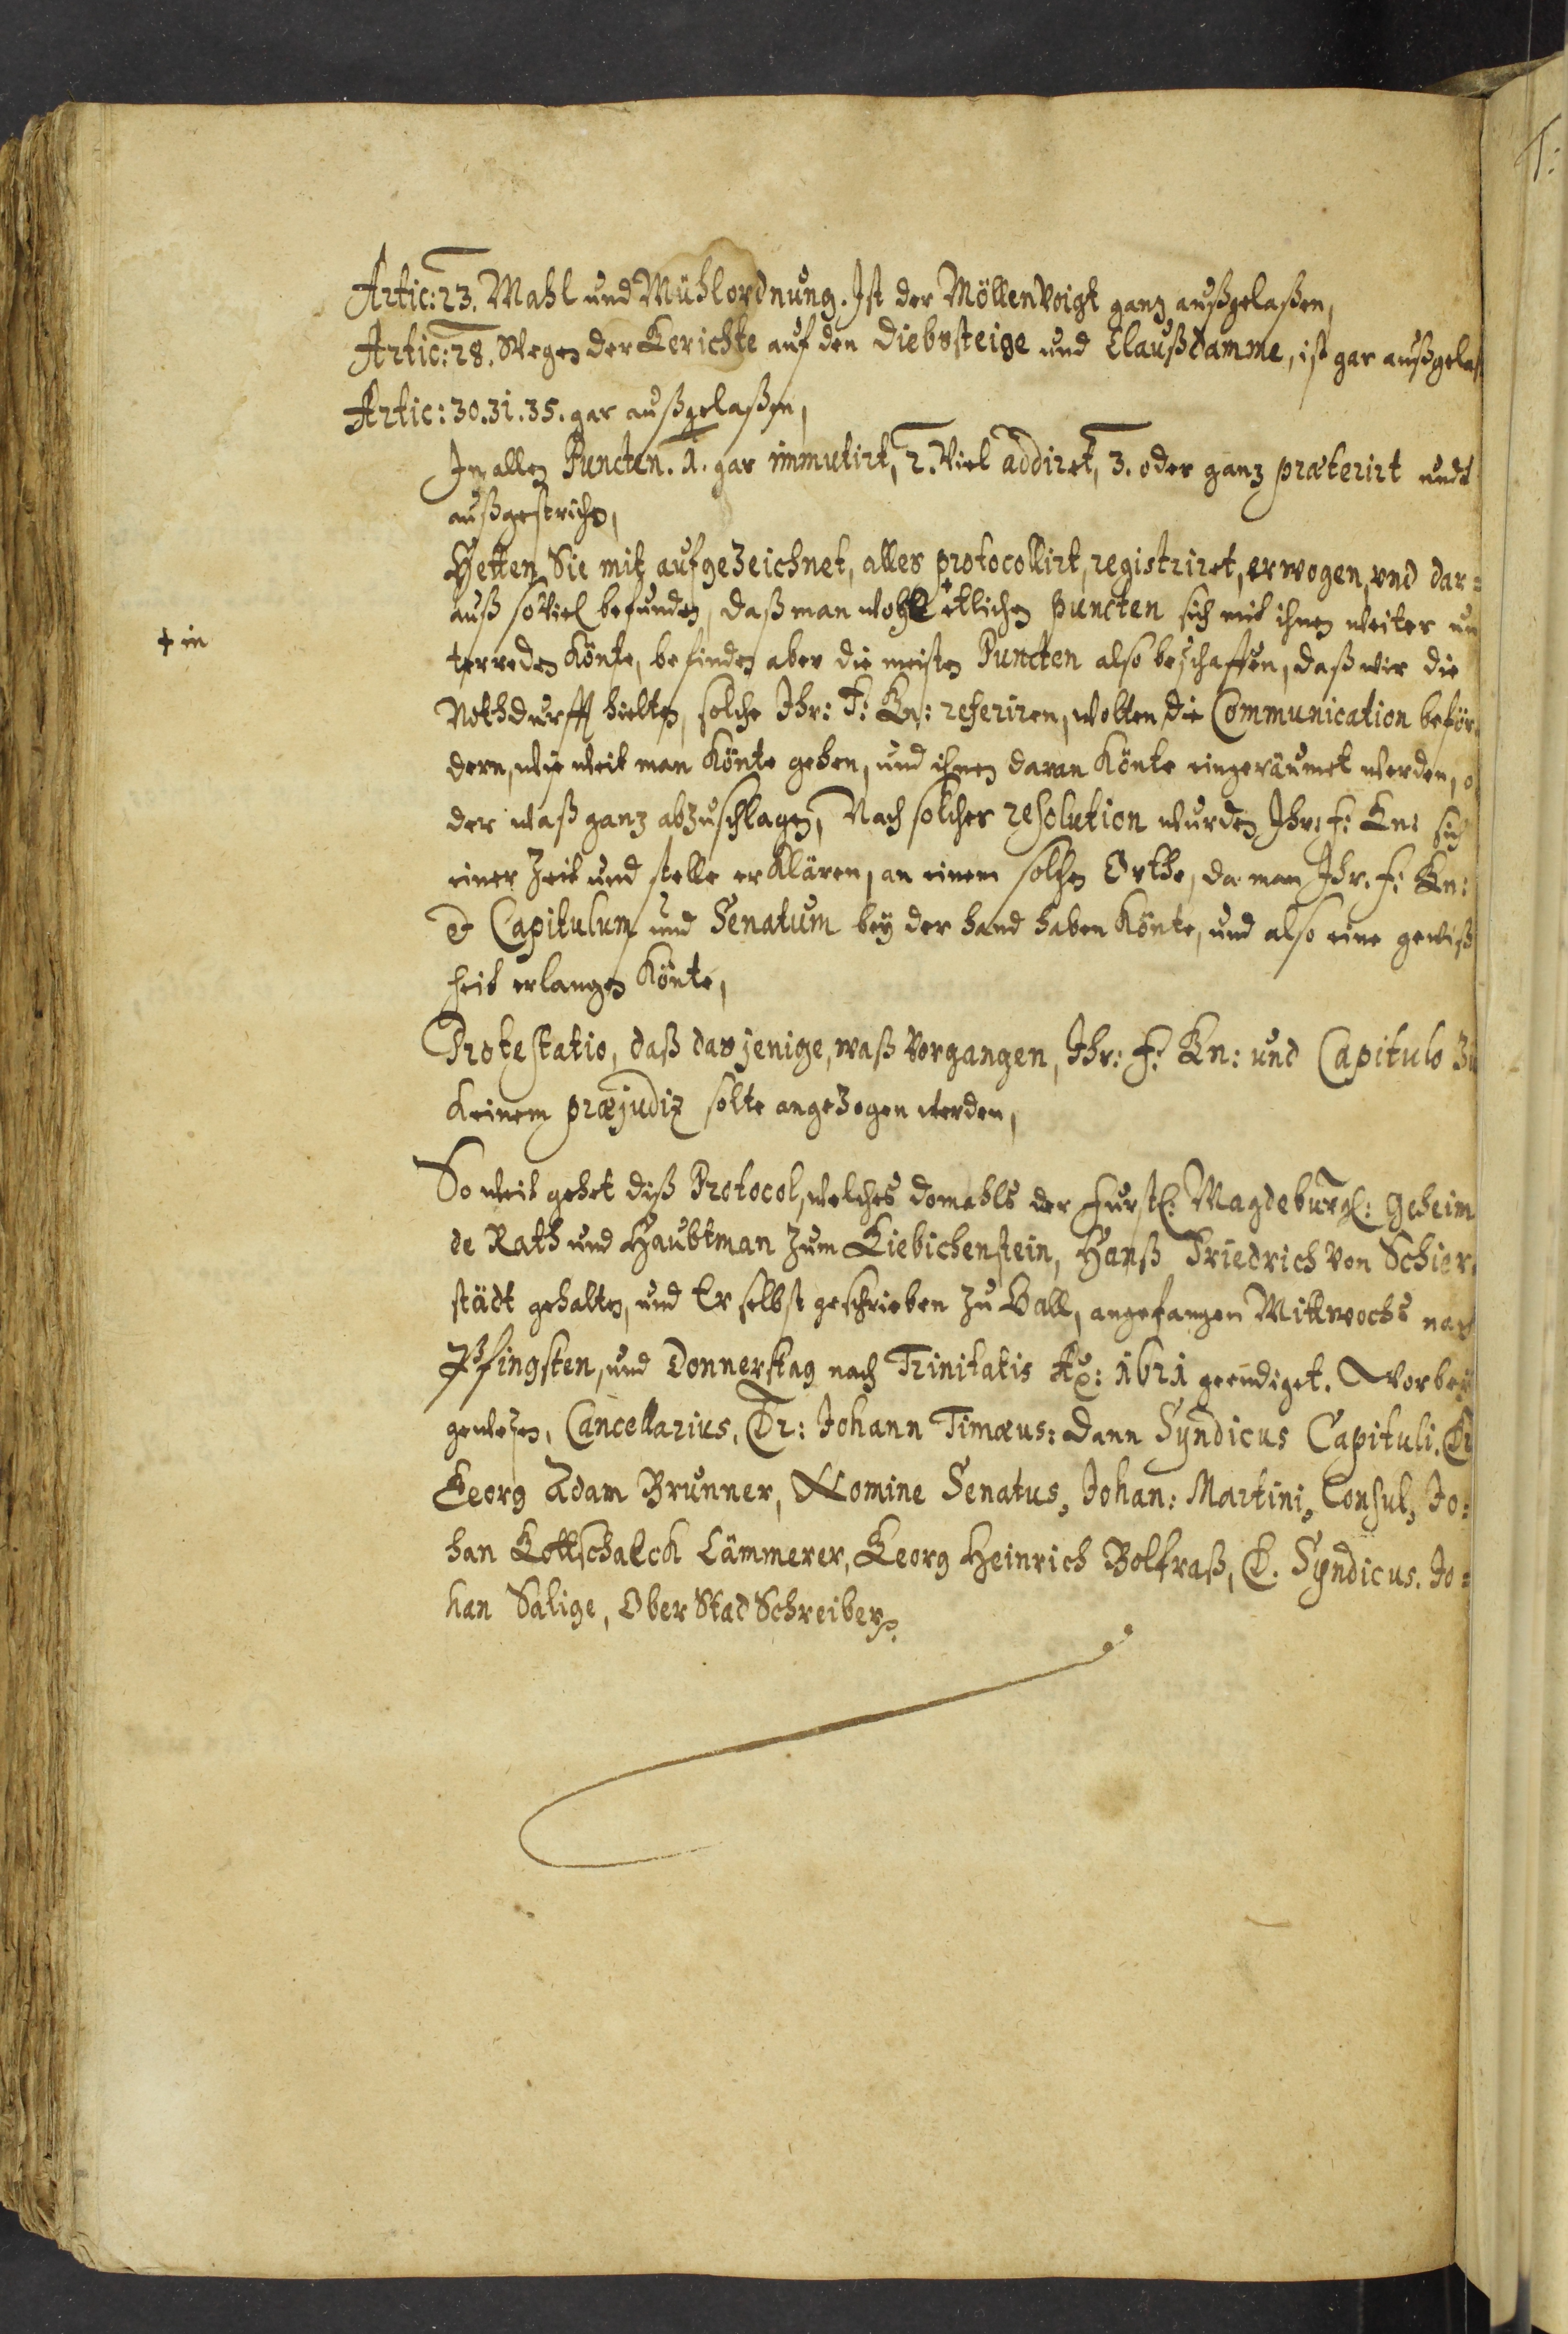 Artic: 23. Mahl und Mühlordnung. Ist der Möllenvoigt ganz außgelaßen,
Artic: 28. Wegen der Gerichte auf den Diebssteige und Claußdamme, ist gar außgelaß
Artic: 30. 31. 35. gar außgelaßen,
In allen Puncten. 1. gar immutirt, 2. Viel addiret, 3. oder ganz præterirt undt
außgestrichen,
Hetten Sie mit aufgezeichnet, alles protocollirt, registriret, erwogen, und dar=
auß soviel befunden, daß man wohl + etlichen puncten sich mit ihnen weiter un
+ in
terreden Könte, befinden aber die meisten Puncten also beschaffen, daß wir die
Nothdurfft hielten, solche Ihr: F: Gn: referiren, wolten die Communication beför=
dern, wie weit man Könte gehen, und ihnen daran Könte eingeräumet werden, o
der waß ganz abzuschlagen, Nach solcher resolution wurden Ihr: F: Gn: sich
einer Zeit und stelle erklären, an einem solchen Orthe, da man Ihr. F: Gn:
& Capitulum und Senatum bey der hand haben Könte, und also eine gewiß
heit erlangen Könte,
Protestatio, daß dasjenige, waß vorgangen, Ihr: F: Gn: und Capitulo zu
keinem præjudiz solte angezogen werden,
So weit gehet diß Protocol, welches domahls der Fürstl: Magdeburgl: Geheim
de Rath und Haubtman zum Giebichenstein, Hanß Friedrich von Schier=
städt gehalten, und Er selbst geschrieben zu Hall, angefangen Mittwochs nach
Pfingsten, und Donnerstag nach Trinitatis Ao: 1621 geendiget. Worbey
gewesen, Cancellarius, Dr: Johann Timæus: Dann Syndicus Capituli. Dr
Georg Adam Brunner, Nomine Senatus, Johan: Martini, Consul, Jo=
han Gottschalck Cämmerer, Georg Heinrich Bolfraß, D. Syndicus. Jo=
han Salige, Ober Stad Schreiber.